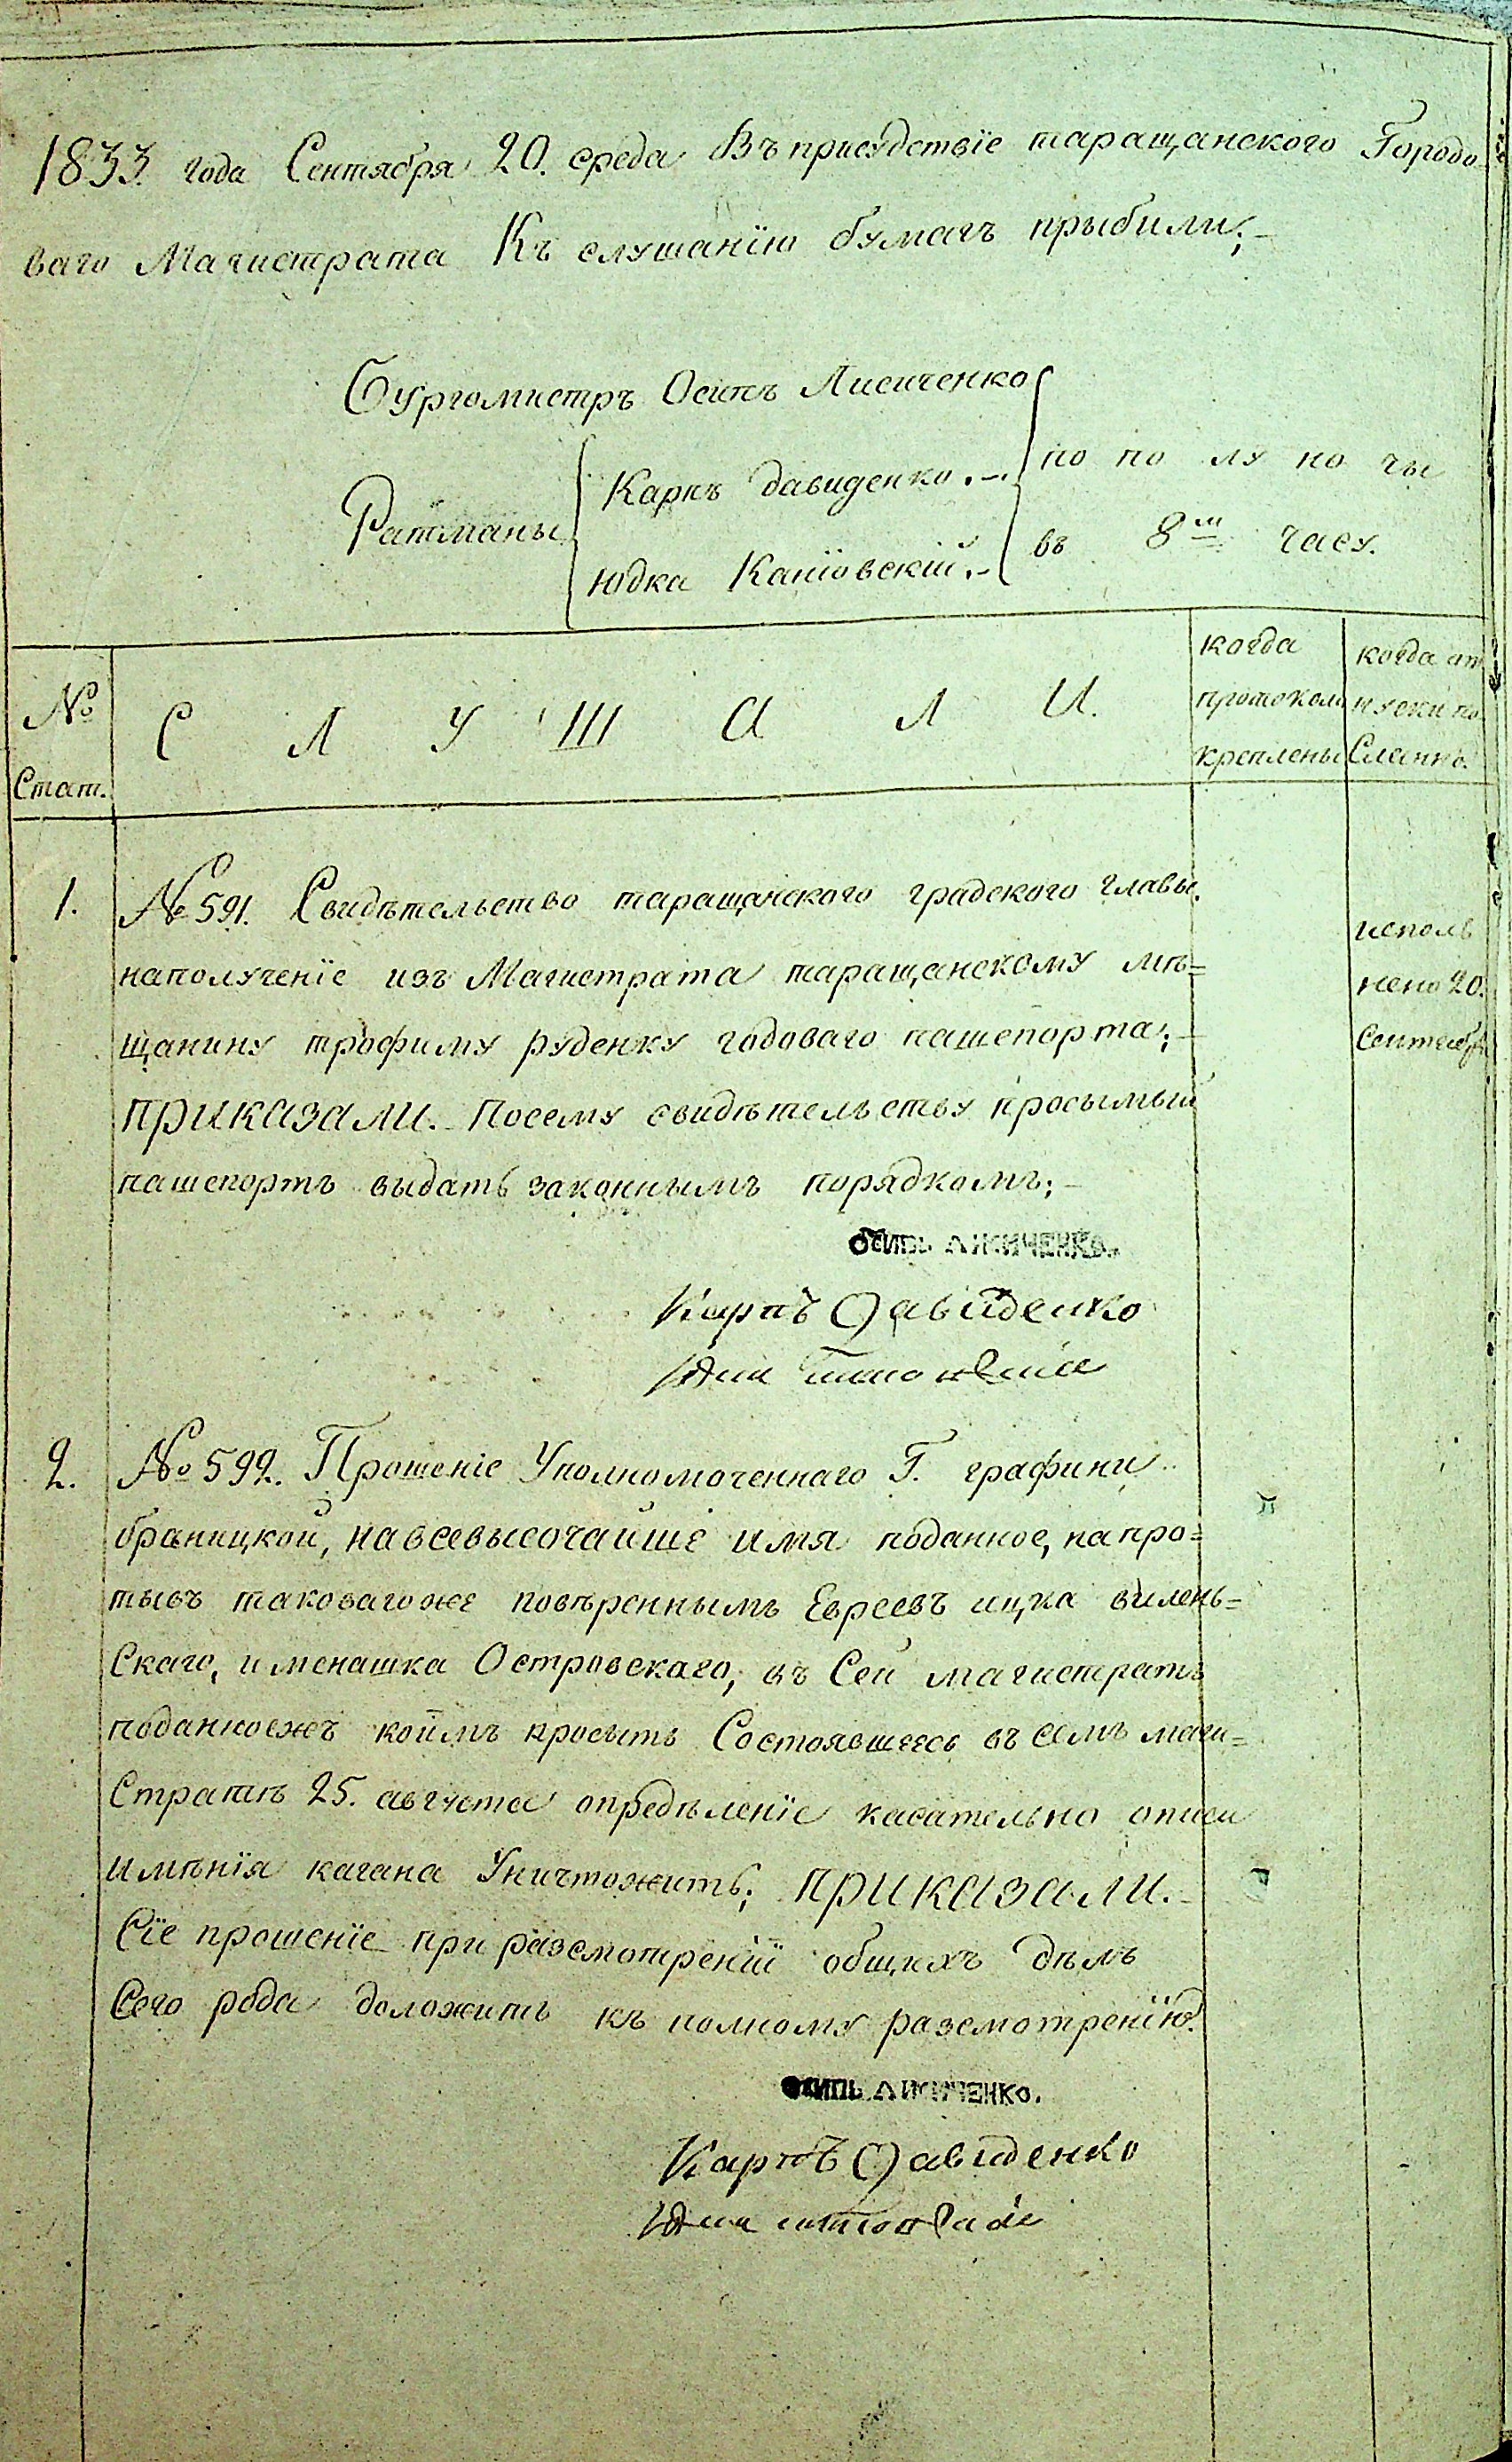 1833. года Сентября 20. среда Въ присудствїе таращанского Городо
ваго Магистрата Къ слушанїю бумагъ прыбили;-
Бургомистръ Осипъ Лисиченко
Ратманы
Карпъ давиденко.-
Юдка Канїовскїй.-
по по лу но чы
въ 8м часу.
№ Стат.
С Л У Ш А Л И.
когда протоколы креплены
когда от пуски по Сланно.
1.
№ 591. Свидѣтельство таращанского градского главы.
наполученїе изъ Магистрата таращанскому мѣ=
щанину трофиму руденку годоваго пашепорта;-
приказали. Посему свидѣтельству просымый
пашепортъ выдать законнымъ порядкомъ;-
исполь
нено 20.
Сентября
ОСИПЬ ЛИСИЧЕНКО.
Карпъ Давиденко
2.
№ 592. Прошенїе Уполномоченнаго Г. графини
браницкой, навсевысочайше имя поданное, на про=
тывъ таковагоже повѣреннымъ Евреевъ ицка вилень=
Скаго, и менашка Островскаго, въ Сей магистратъ
поданноежъ коимъ просытъ Состоявшеесь въ семъ маги=
Стратѣ 25. августа опредѣленїе касательно описи
имѣнїя кагана Уничтожить; приказали.-
Сїе прошенїе при разсмотренїи общихъ дѣлъ
Сего рода доложить къ полному разсмотренїю.
ОСИПЬ ЛИСИЧЕНКО.
Карпъ Давиденко